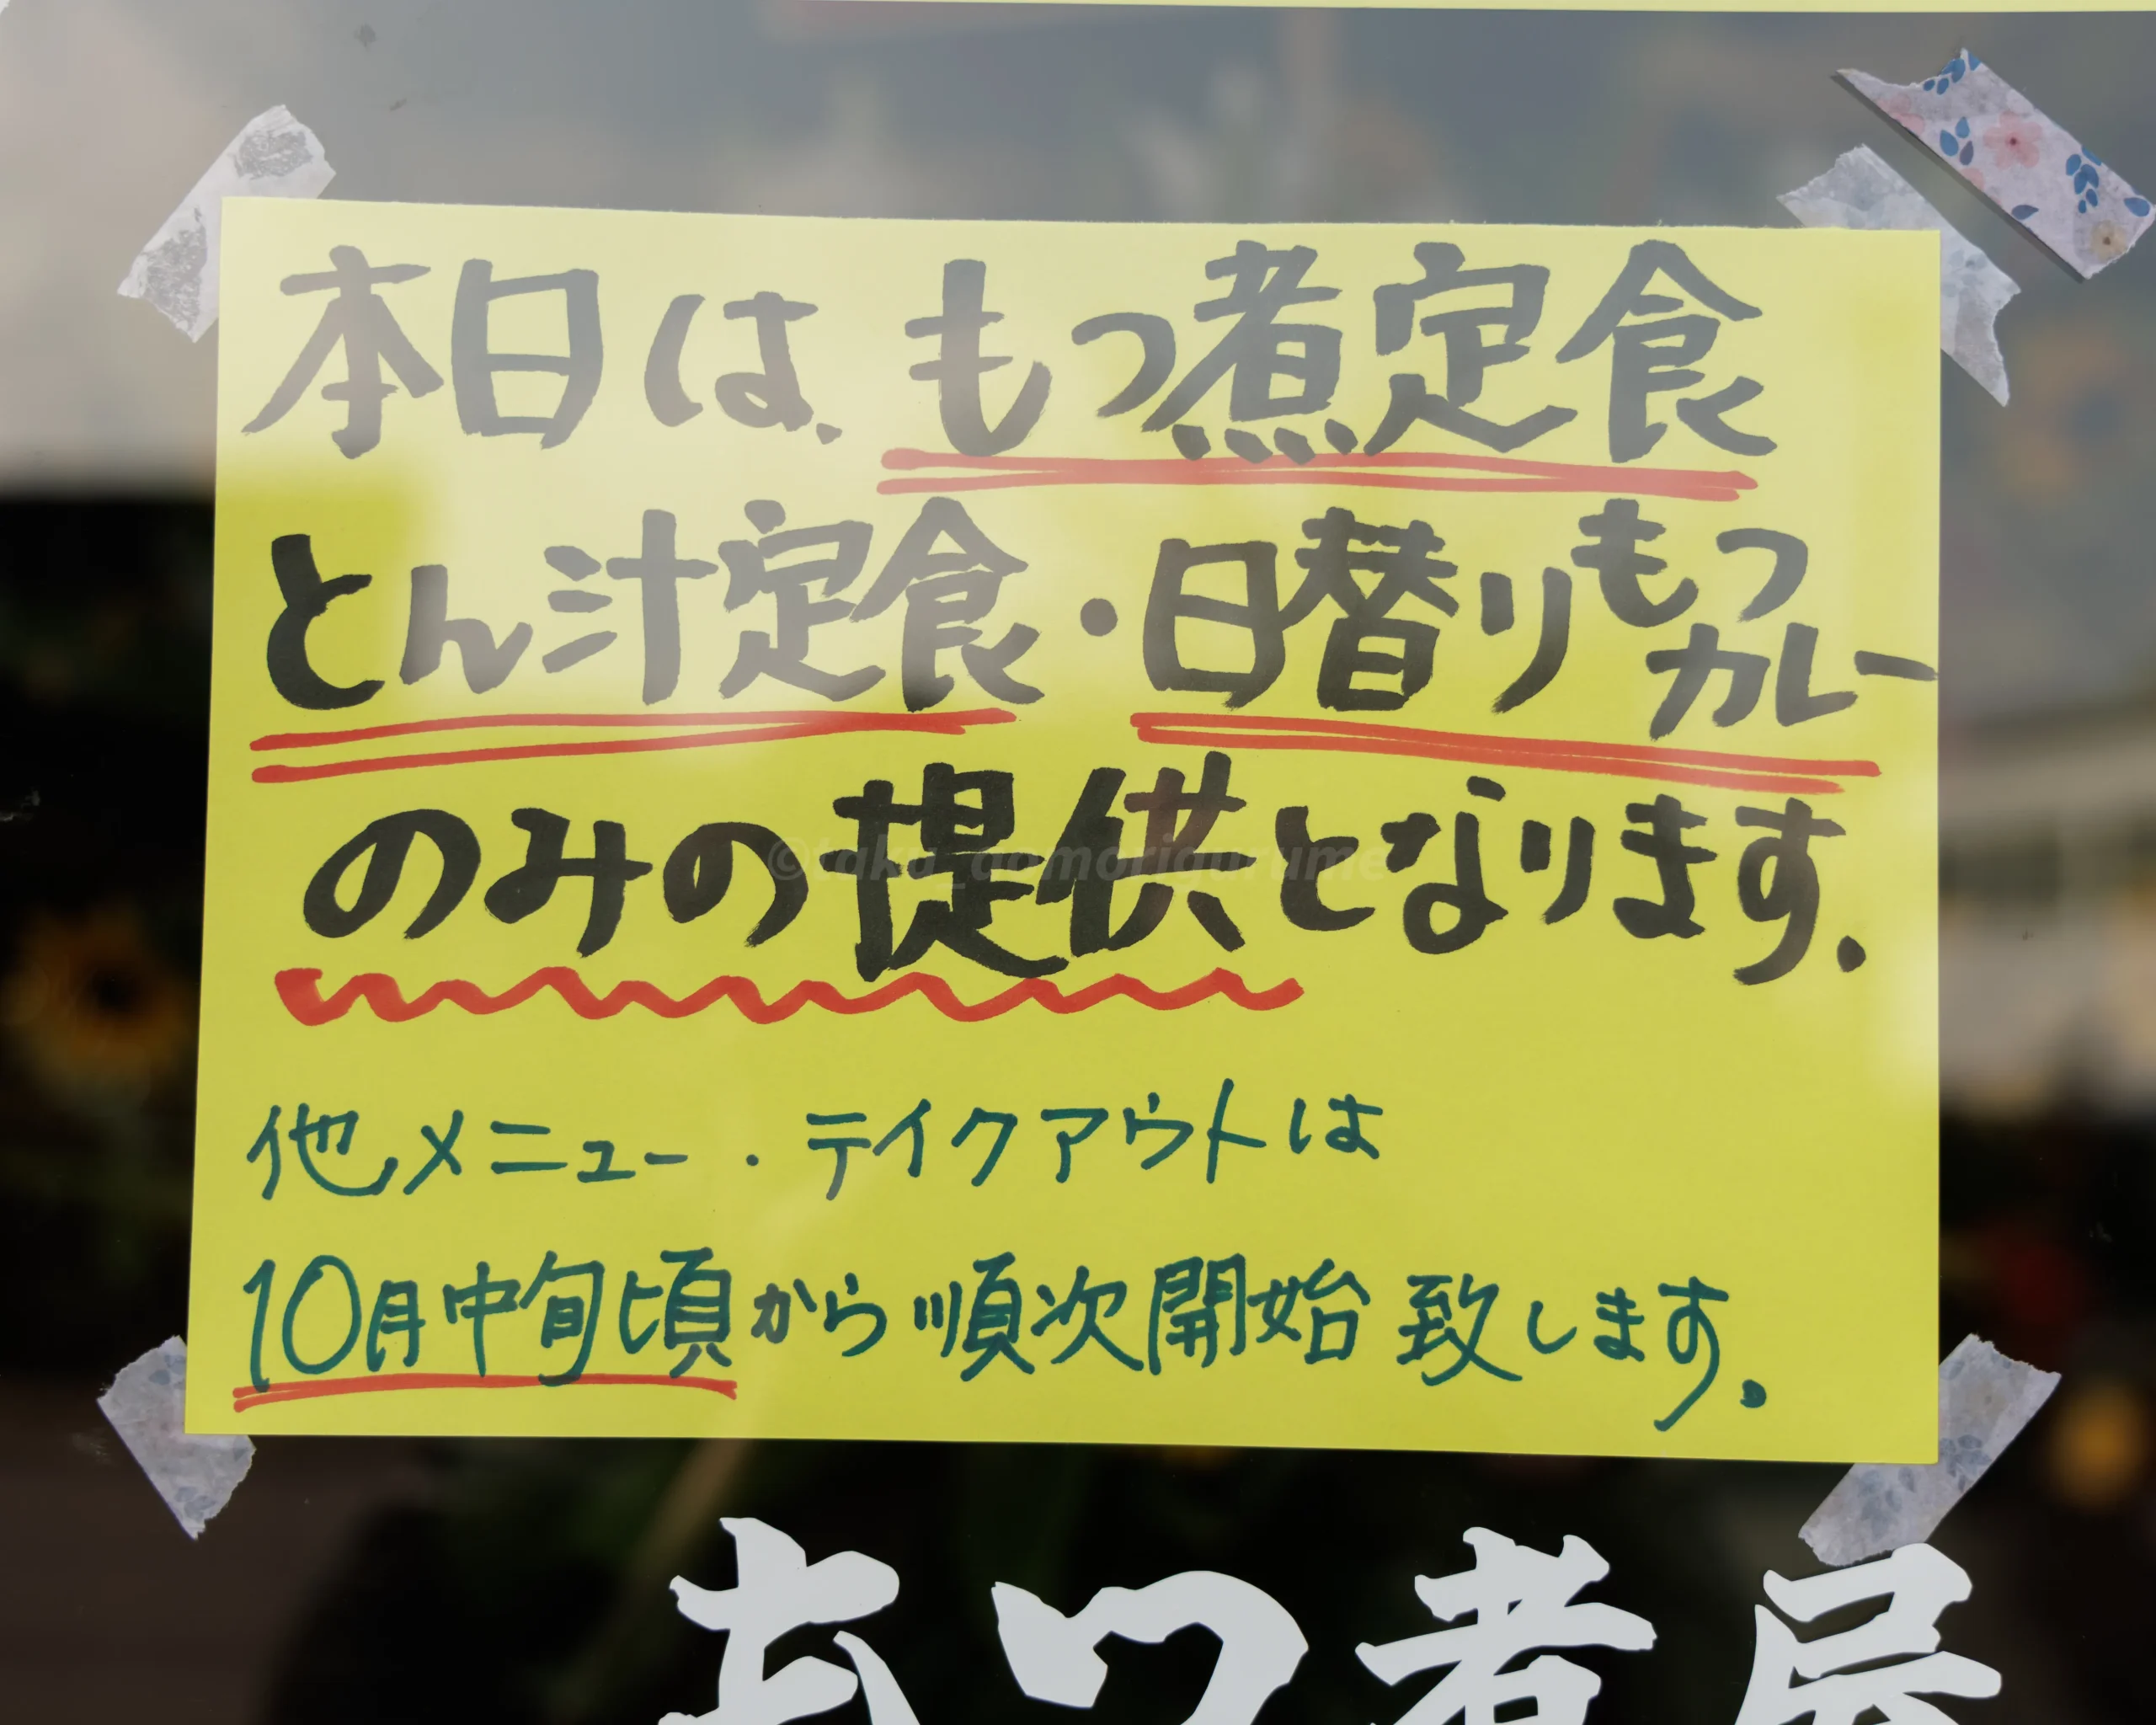 本日は、もつ煮定食
とん汁定食・日替りもつカレー
のみの提供となります.
他メニュー・テイクアウトは
10月中旬頃から順次開始致します。
©taku_aomorigurume
もつ煮屋